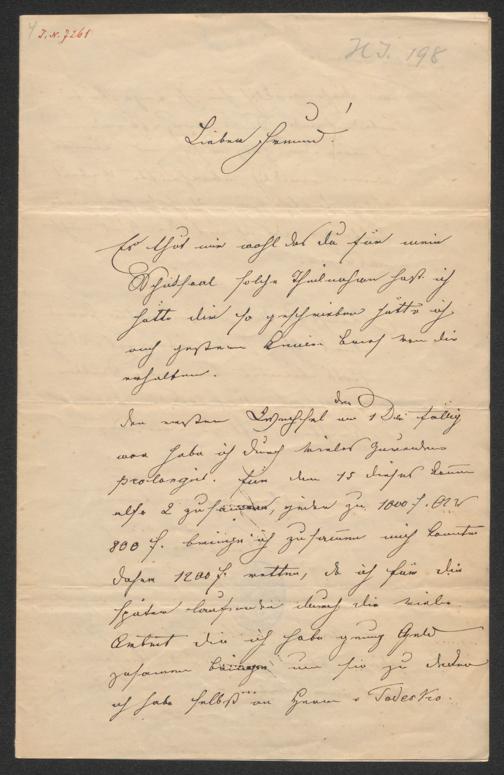 I.N. 7261
H.I. 198
Lieber Freund!
Es thut mir wohl das du für mein
Schicksal solche Theilnahme hast ich
hätte dir so geschrieben hätte ich
auch gestern keinen Brief von dir
erhalten.
den ersten Wechsel der am 1 Dec fällig
war habe ich durch vieles Zureden
prolongirt. für den 15 dieses kommen
also 2 zusammen, jeder zu 1000 f.
800 f. bringe ich zusammen mich könnten
daher 1200 f. retten, da ich für die
später laufenden durch die viele
Arbeit die ich habe genug Geld
zusamen bringe um sie zu decken
ich habe selbst an Herrn v Todesko